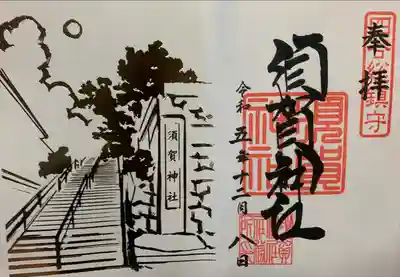 奉拝
四谷総鎮守
須賀神社
令和五年十二月八日
須賀神社